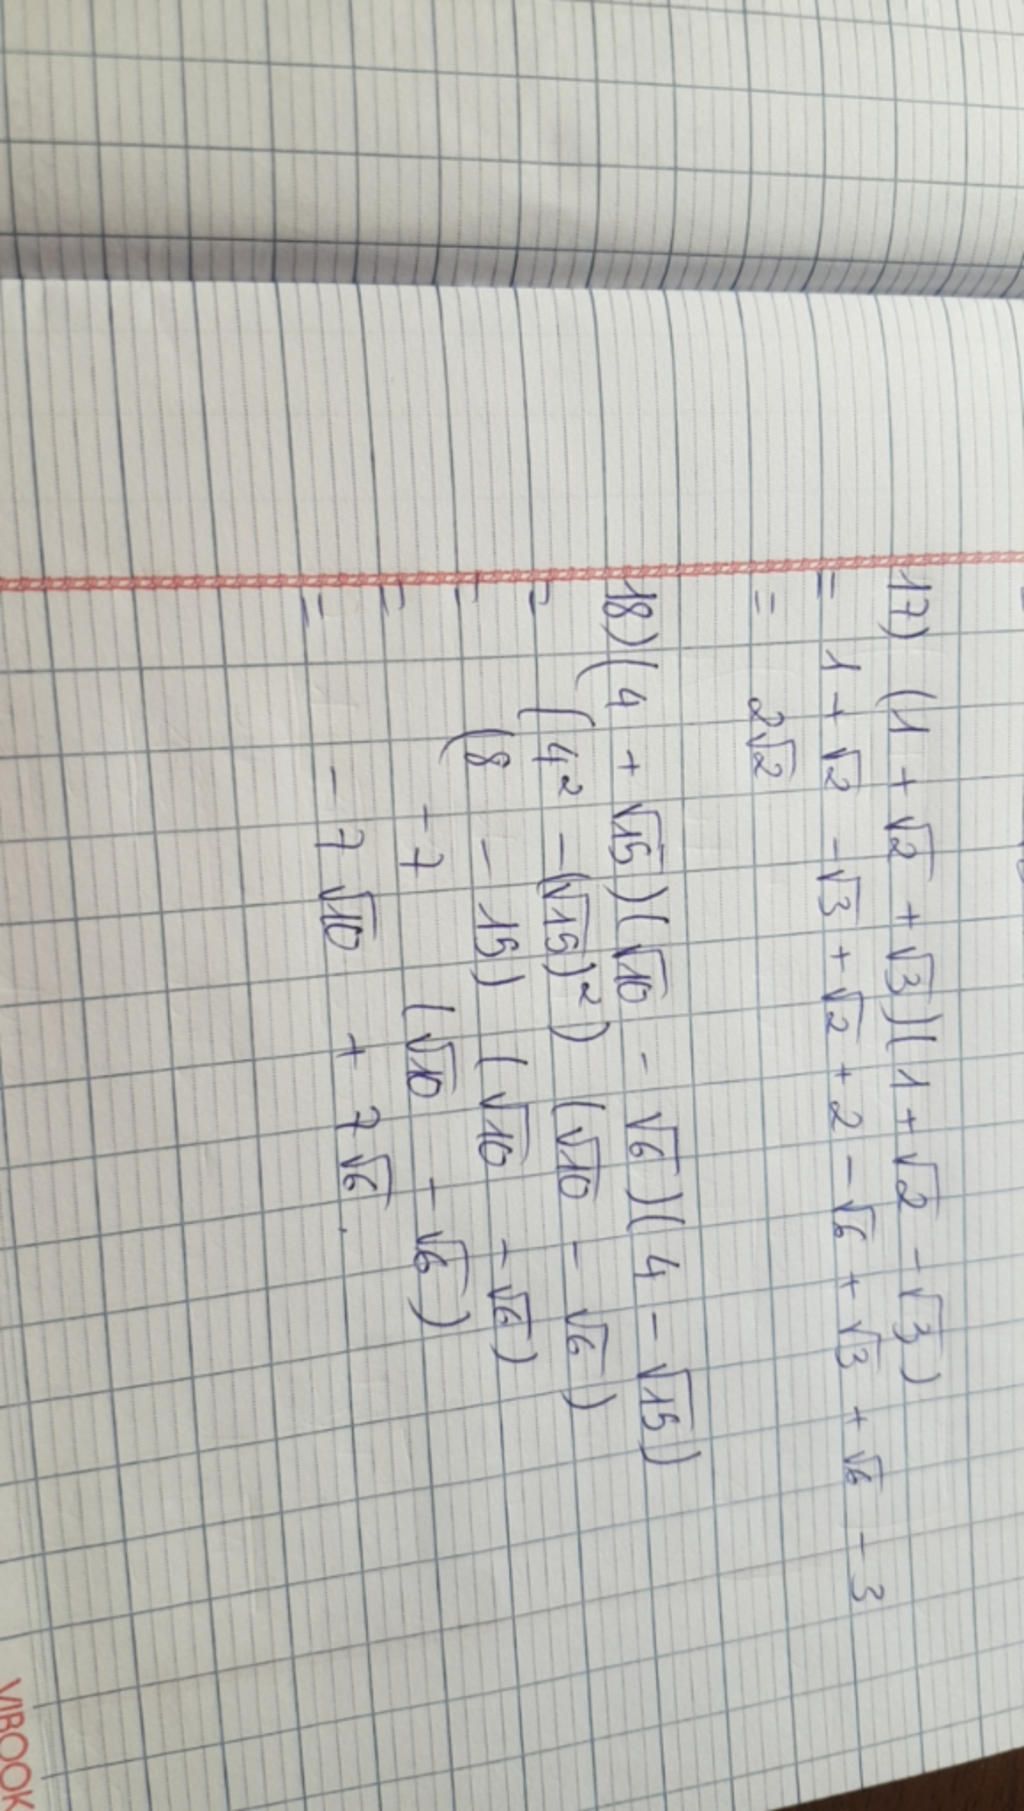 17) (1 + √2 + √3)(1 + √2 - √3)
= 1 + √2 - √3 + √2 + 2 - √6 + √3 + √6 - 3
= 2√2
18) (4 + √15)(√10 - √6)(4 - √15)
= (4² - (√15)²) (√10 - √6)
= (8 - 15) (√10 - √6)
= -7 (√10 - √6)
= -7√10 + 7√6.
VIBOOK